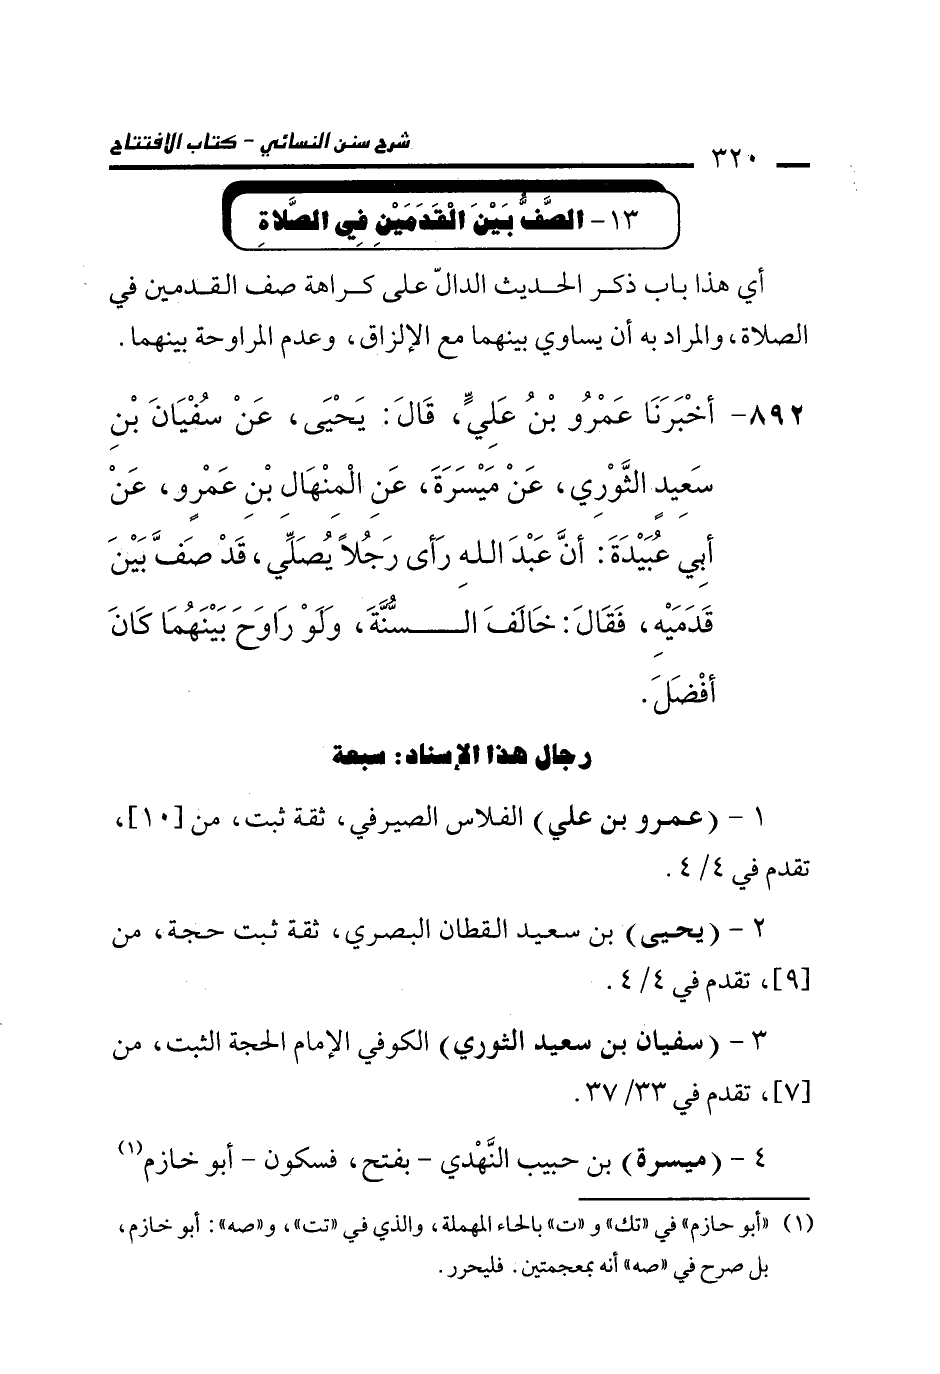 شرح سنن النسائي - كتاب الافتتاح
٣٢٠
١٣- الصَّفُّ بَيْنَ الْقَدَمَيْنِ فِي الصَّلَاةِ
أي هذا باب ذكر الحديث الدالّ على كراهة صف القدمين في
الصلاة، والمراد به أن يساوي بينهما مع الإلزاق، وعدم المراوحة بينهما .
٨٩٢- أَخْبَرَنَا عَمْرُو بْنُ عَلِيٍّ، قَالَ: يَحْيَى، عَنْ سُفْيَانَ بْنِ
سَعِيدٍ الثَّوْرِي، عَنْ مَيْسَرَةَ، عَنِ الْمِنْهَالِ بْنِ عَمْرٍو، عَنْ
أَبِي عُبَيْدَةَ: أنَّ عَبْدَ الله رَأى رَجُلاً يُصَلِّي، قَدْ صَفَّ بَيْنَ
قَدَمَيْهِ، فَقَالَ: خَالَفَ السُّنَّةَ، وَلَوْ رَاوَحَ بَيْنَهُمَا كَانَ
أفْضَلَ.
رجال هذا الإسناد: سبعة
١ - (عمرو بن علي) الفلاس الصيرفي، ثقة ثبت، من [١٠]،
تقدم في ٤/ ٤ .
٢ - (يحيى) بن سعيد القطان البصري، ثقة ثبت حجة، من
[٩]، تقدم في ٤/ ٤ .
٣ - (سفيان بن سعيد الثوري) الكوفي الإمام الحجة الثبت، من
[٧]، تقدم في ٣٣/ ٣٧.
٤ - (ميسرة) بن حبيب النَّهْدي - بفتح، فسكون - أبو خازم(١)
(١) «أبو حازم» في «تك» و «ت» بالحاء المهملة، والذي في «تت»، و«صه»: أبو خازم،
بل صرح في «صه» أنه بمعجمتين. فليحرر.